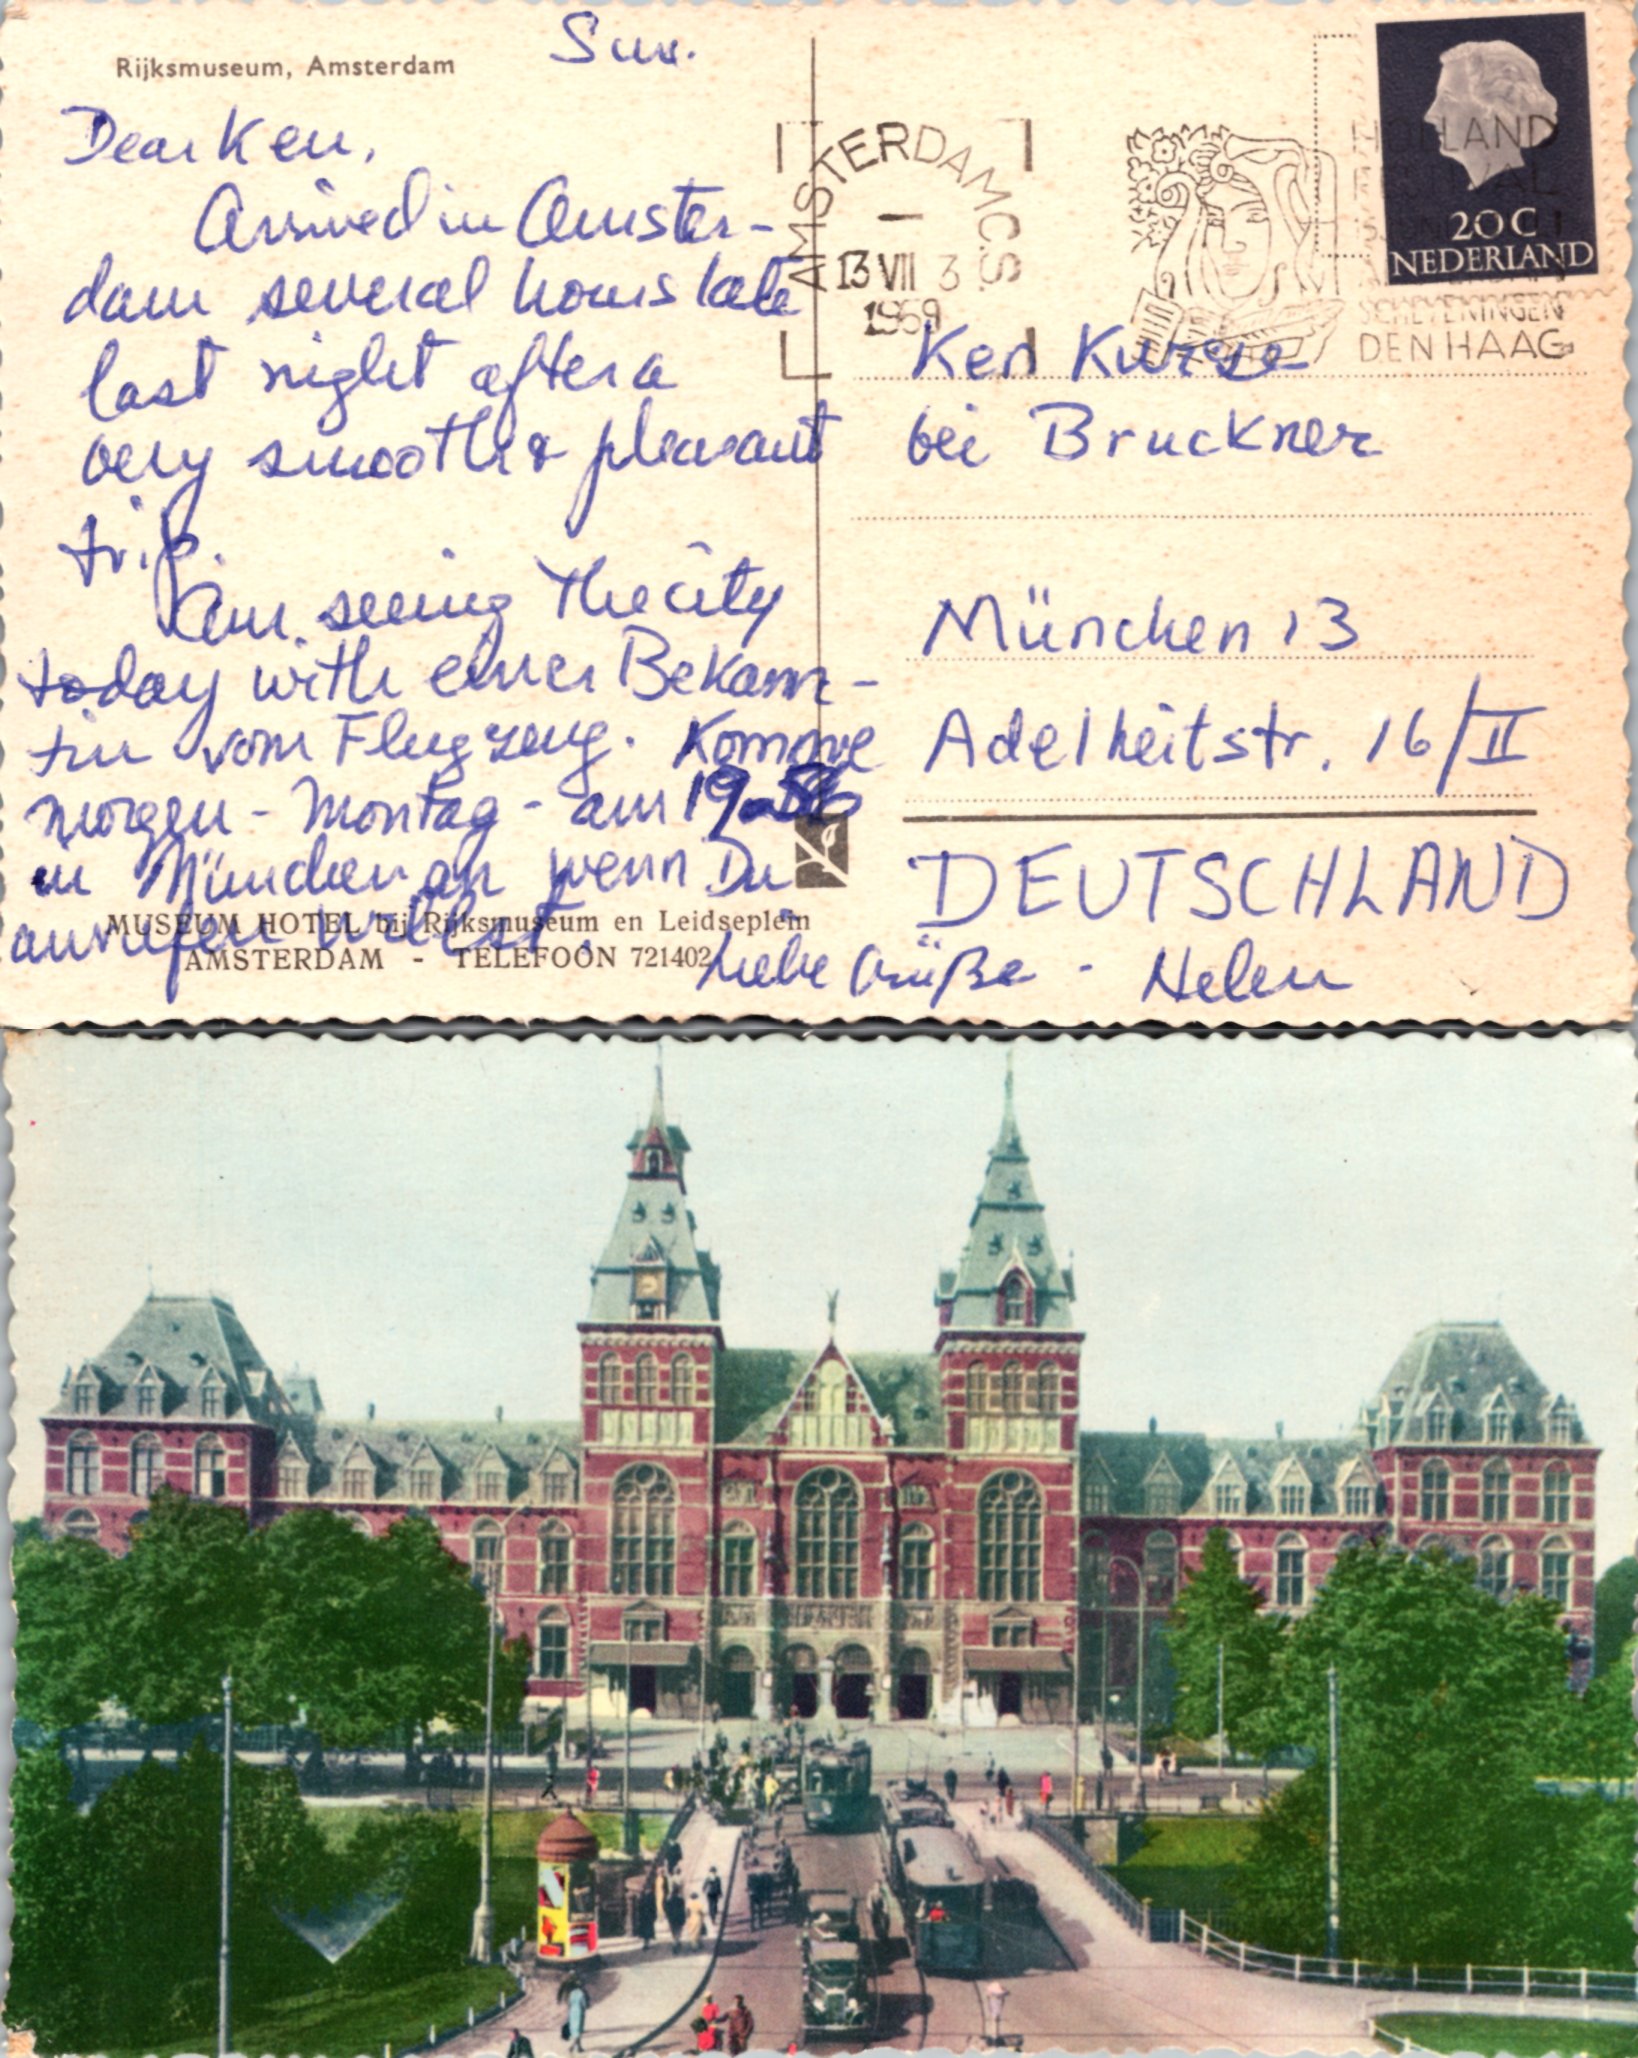 Rijksmuseum, Amsterdam
Sun.
Dear Ken,
Arrived in Amster-
dam several hours late
last night after a
very smooth & pleasant
trip.
Am seeing the city
today with einer Bekann-
tin vom Flugzeug. Komme
morgen - Montag - am 19
in München an wenn Du
anrufen willst.
Liebe Grüße - Helen
MUSEUM HOTEL bij Rijksmuseum en Leidseplein
AMSTERDAM - TELEFOON 721402
AMSTERDAM C.S.
13 VII 3
1959
HOLLAND
FESTIVAL
SCHEVENINGEN
DEN HAAG
20 C
NEDERLAND
Ken Kurze
bei Bruckner
München 13
Adelheitstr. 16/II
DEUTSCHLAND